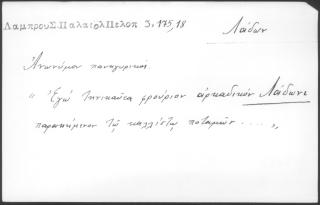 Λαμπρου Σ. Παλαιολ Πελοπ 3, 175, 18
Λάδων
Ἀνωνύμου πανηγυρικοί
"Ἐγὼ τηνικαῦτα φρούριον ἀρκαδικὸν Λάδωνι
παρακείμενον τῷ καλλίστῳ ποταμῶν . . . . "